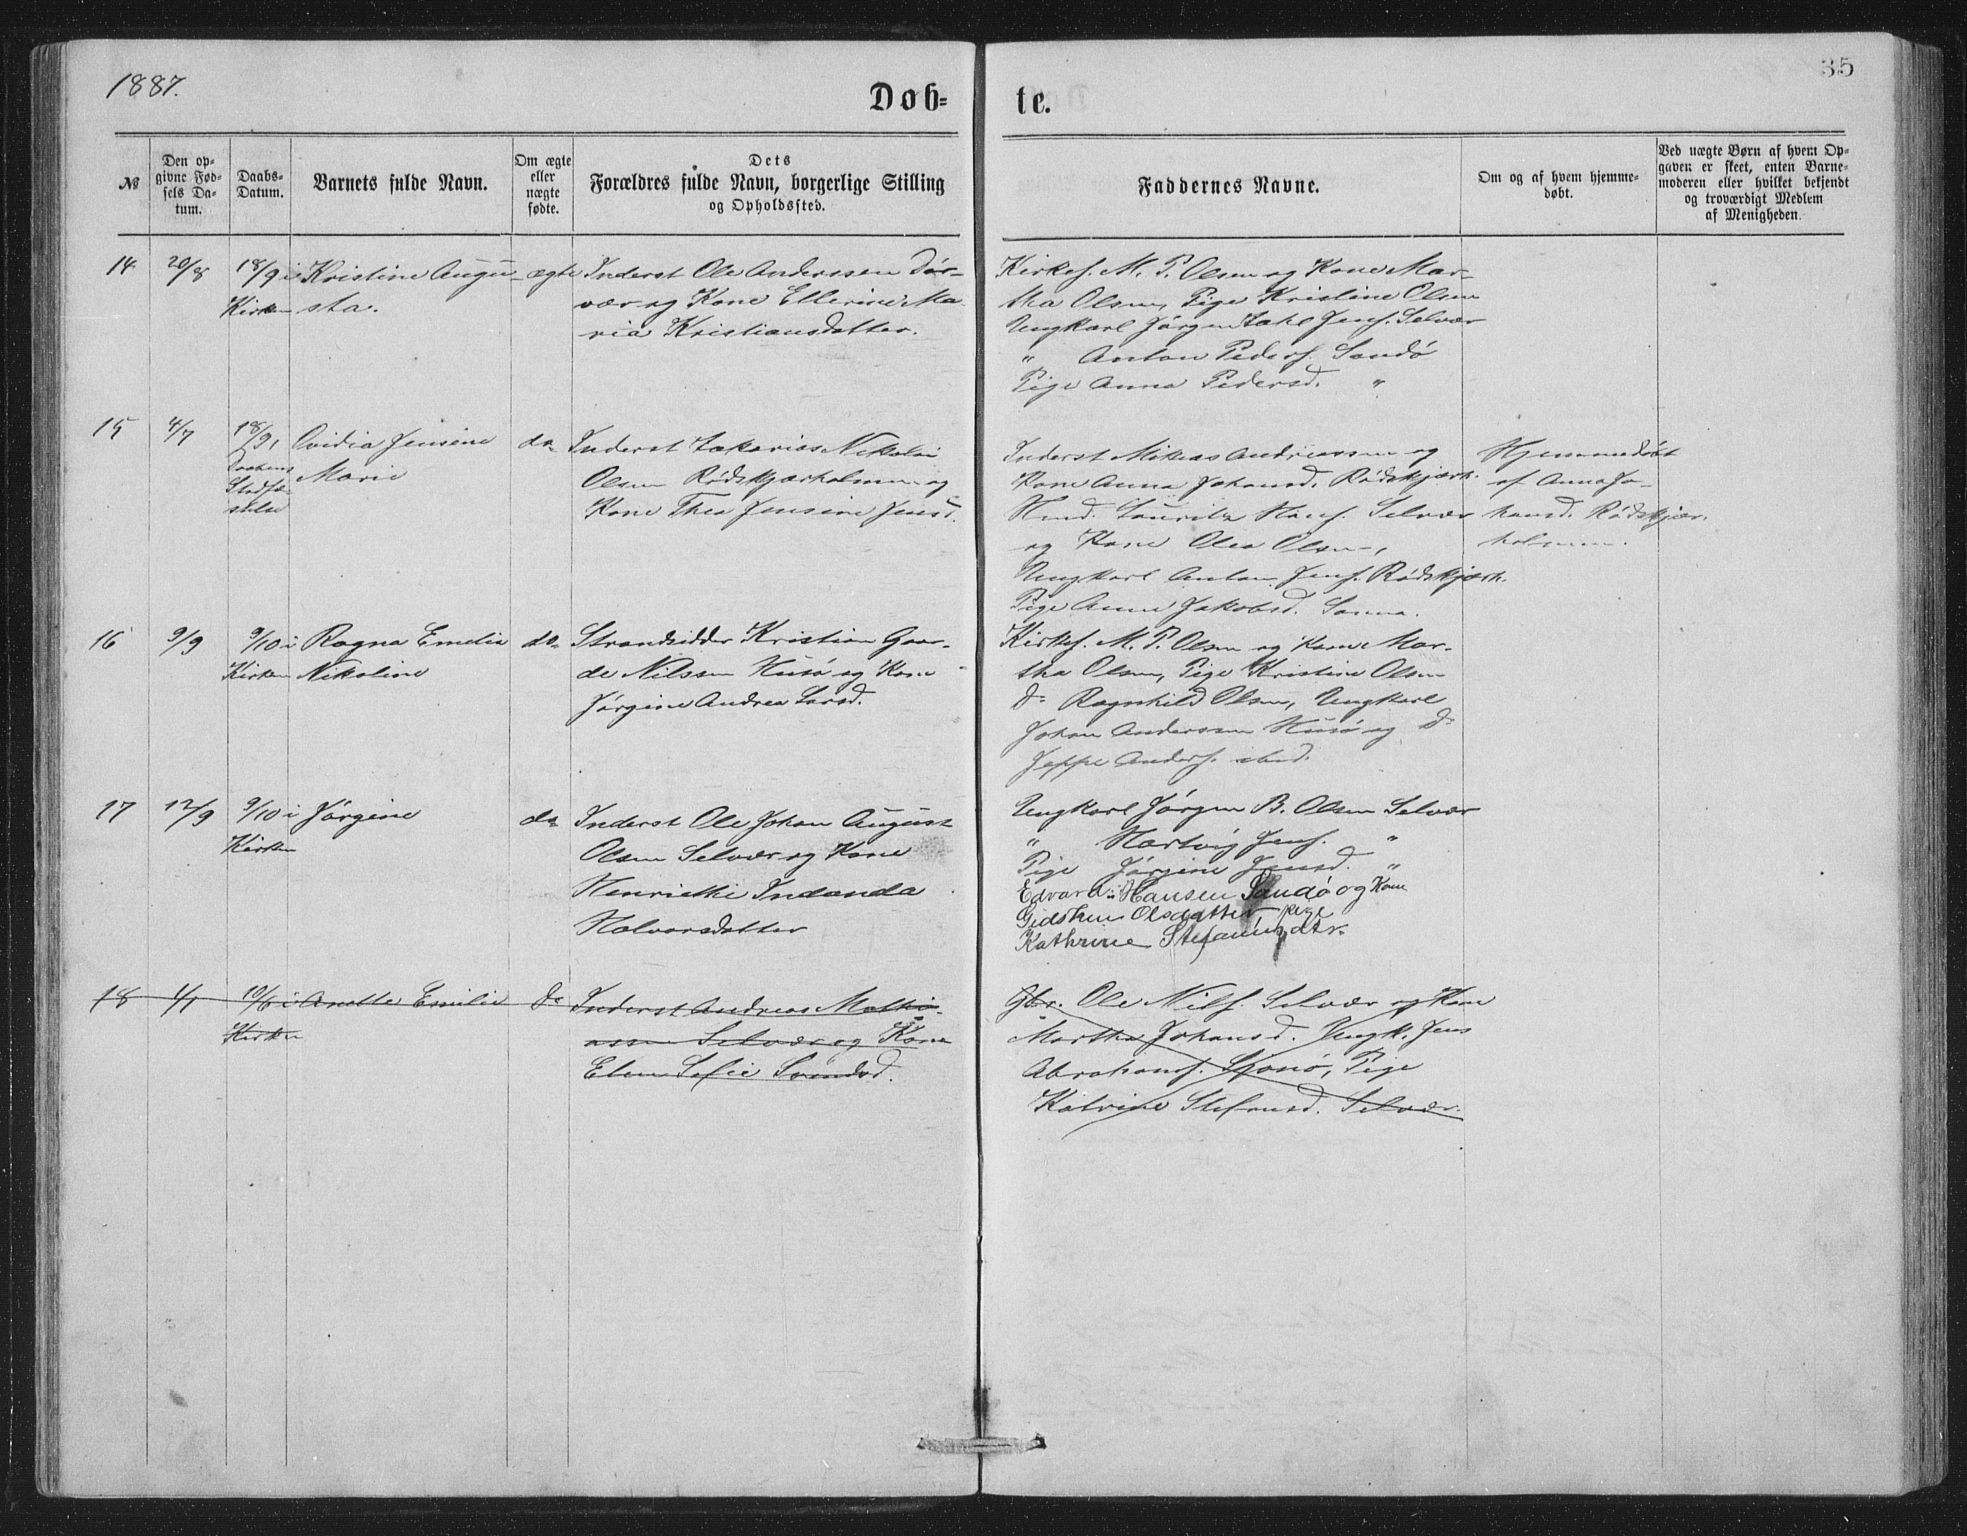 1887.
35
Døb-
te.
№
Den op-
givne Fød-
sels Da-
tum.
Daabs-
Datum.
Barnets fulde Navn.
Om ægte
eller
uægte
fødte.
Dets
Forældres fulde Navn, borgerlige Stilling
og Opholdssted.
Faddernes Navne.
Om og af hvem hjemme-
døbt.
Ved uægte Børn af hvem Op-
gaven er skeet, enten Barne-
moderen eller hvilket bekjendt
og troværdigt Medlem
af Menigheden.
14
20/8
18/9 i
Kirken
Kristine Augu-
sta.
ægte
Inderst Ole Anderssen Dør-
vær og Kone Ellerine Ma
ria Kristiansdatter.
Kirkes. M. P. Olsen og Kone Mar-
tha Olsen, Pige Kristine Olsen
Ungkarl Jørgen Zakl Jens. Selvær
" Anton Peders. Sandø
Pige Anna Pedersd. "
15
4/7
18/9,
Daabens
Stadfæ-
stelse
Ovidia Jensine
Marie
do
Inderst Zakarias Nikolai
Olsen Rødskjærholmen og
Kone Thea Jensine Jensd.
Inderst Mikias Andreassen og
Kone Anna Johansd. Rødskjærh.
Hmd. Lauritz Hans. Selvær
og Kone Olea Olsen,
Ungkarl Anton Jens. Rødskjærh.
Pige Anne Jakobsd. Sanna.
Hjemmedøbt
af Anna Jo-
hansd. Rødskjær-
holmen.
16
9/9
9/10 i
Kirken
Ragna Emelie
Nikoline
do
Strandsidder Kristian Gaar-
de Nilssen Husø og Kone
Jørgine Andrea Larsd.
Kirkes. M. P. Olsen og Kone Mar-
tha Olsen, Pige Kristine Olsen
do Ragnhild Olsen, Ungkarl
Johan Anderssen Husø og do
Jeppe Anders. ibid.
17
12/9
9/10 i
Kirken
Jørgine
do
Inderst Ole Johan August
Olsen Selvær og Kone
Henriette Indanda
Halvorsdatter
Ungkarl Jørgen B. Olsen Selvær
" Hartvig Jens. "
Pige Jørgine Jensd. "
Edvard Hansen Sandø og Kone
Gidsken Olsdatter pige
Kathrine Stefansdtr.
18
4/1
10/6 i
Kirken
Anette Emilie
do
Inderst Andreas Mathi-
assen Selvær og Kone
Elen Sofie Svendsd.
Gbr. Ole Nils. Selvær og Kone
Martha Johansd. Ungk. Jens
Abrahams. Pige
Katrine Stefansd. Selvær.